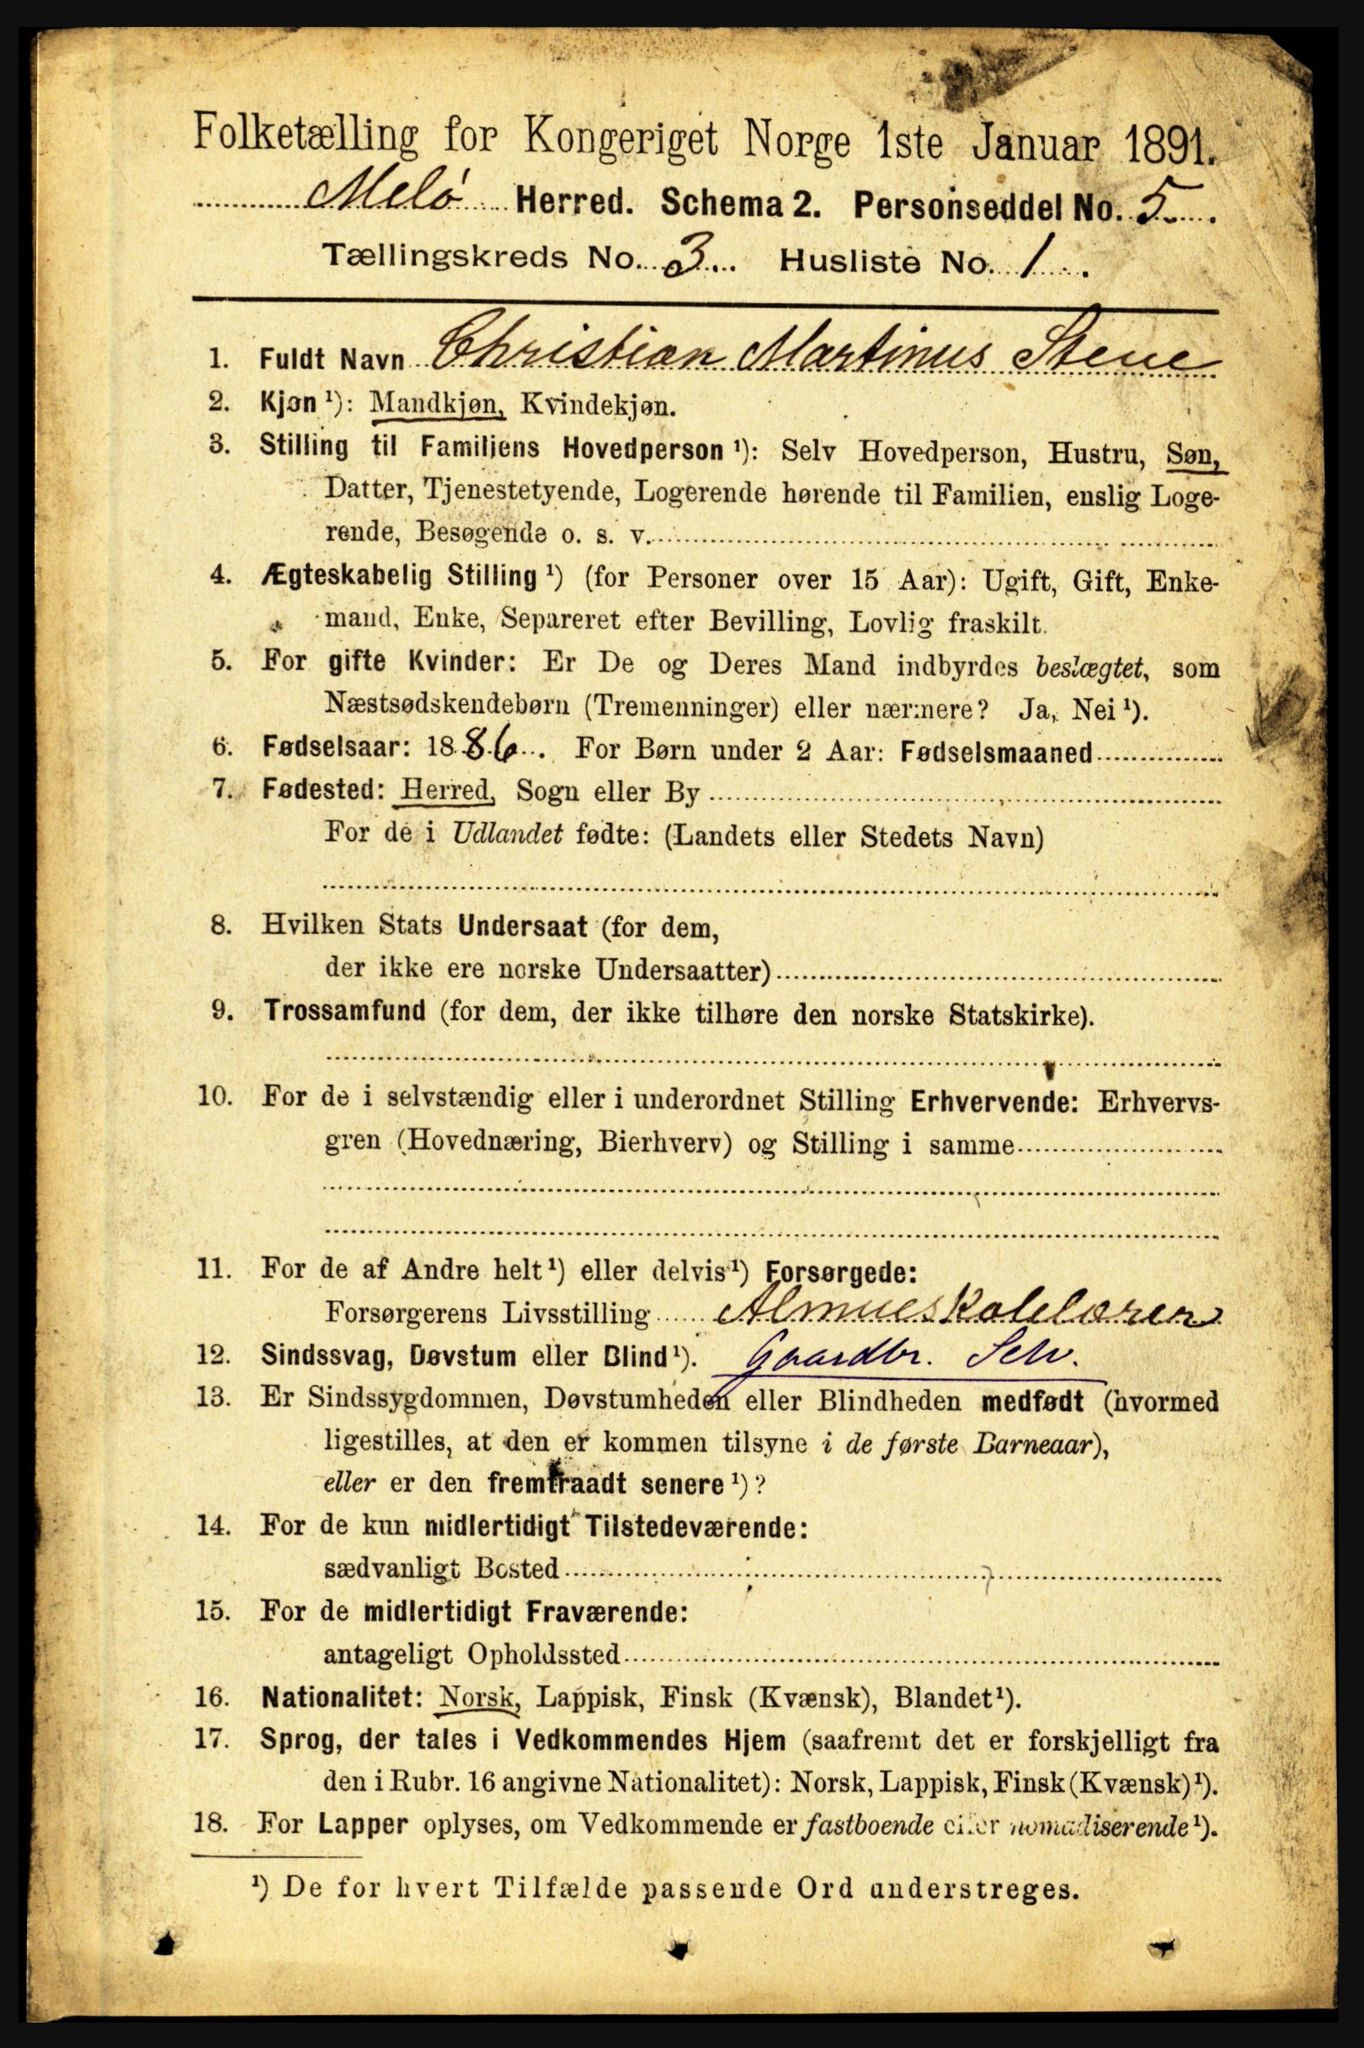 Folketælling for Kongeriget Norge 1ste Januar 1891.
Melø Herred. Schema 2. Personseddel No. 5.
Tællingskreds No. 3. Husliste No. 1.
1. Fuldt Navn Christian Martinus Stene
2. Kjøn ¹): Mandkjøn, Kvindekjøn.
3. Stilling til Familiens Hovedperson ¹): Selv Hovedperson, Hustru, Søn,
Datter, Tjenestetyende, Logerende hørende til Familien, enslig Loge-
rende, Besøgende o. s. v.
4. Ægteskabelig Stilling ¹) (for Personer over 15 Aar): Ugift, Gift, Enke-
mand, Enke, Separeret efter Bevilling, Lovlig fraskilt.
5. For gifte Kvinder: Er De og Deres Mand indbyrdes beslægtet, som
Næstsødskendebørn (Tremenninger) eller nærmere? Ja, Nei ¹).
6. Fødselsaar: 1886. For Børn under 2 Aar: Fødselsmaaned
7. Fødested: Herred, Sogn eller By
For de i Udlandet fødte: (Landets eller Stedets Navn)
8. Hvilken Stats Undersaat (for dem,
der ikke ere norske Undersaatter)
9. Trossamfund (for dem, der ikke tilhøre den norske Statskirke).
10. For de i selvstændig eller i underordnet Stilling Erhvervende: Erhvervs-
gren (Hovednæring, Bierhverv) og Stilling i samme
11. For de af Andre helt ¹) eller delvis ¹) Forsørgede:
Forsørgerens Livsstilling Almueskolelærer
12. Sindssvag, Døvstum eller Blind ¹). Gaardbr. Selv.
13. Er Sindssygdommen, Døvstumheden eller Blindheden medfødt (hvormed
ligestilles, at den er kommen tilsyne i de første Barneaar),
eller er den fremtraadt senere ¹)?
14. For de kun midlertidigt Tilstedeværende:
sædvanligt Bosted
15. For de midlertidigt Fraværende:
antageligt Opholdssted
16. Nationalitet: Norsk, Lappisk, Finsk (Kvænsk), Blandet ¹).
17. Sprog, der tales i Vedkommendes Hjem (saafremt det er forskjelligt fra
den i Rubr. 16 angivne Nationalitet): Norsk, Lappisk, Finsk (Kvænsk) ¹).
18. For Lapper oplyses, om Vedkommende er fastboende eller nomadiserende ¹).
¹) De for hvert Tilfælde passende Ord understreges.